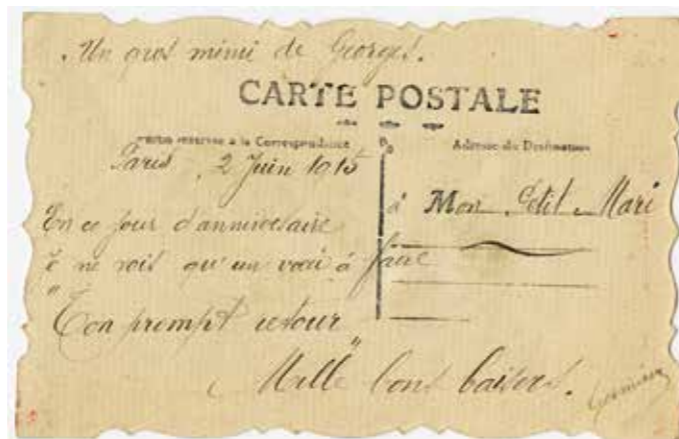 Un gros mimi de Georges.
CARTE POSTALE
Partie réservée à la Correspondance
Adresse du Destinataire
Paris, 2 Juin 1915
à Mon Petit Mari
En ce jour d'anniversaire
je ne vois qu'un vœu à faire
"Ton prompt retour"
Mille bons baisers.
Germaine